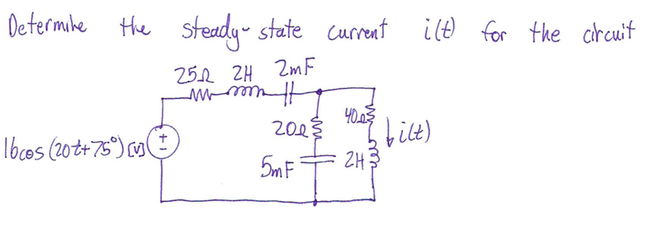 Determine the steady-state current i(t) for the circuit
25Ω 2H 2mF
16cos(20t+75°)[V]
+
-
20Ω
5mF
40Ω
2H
i(t)